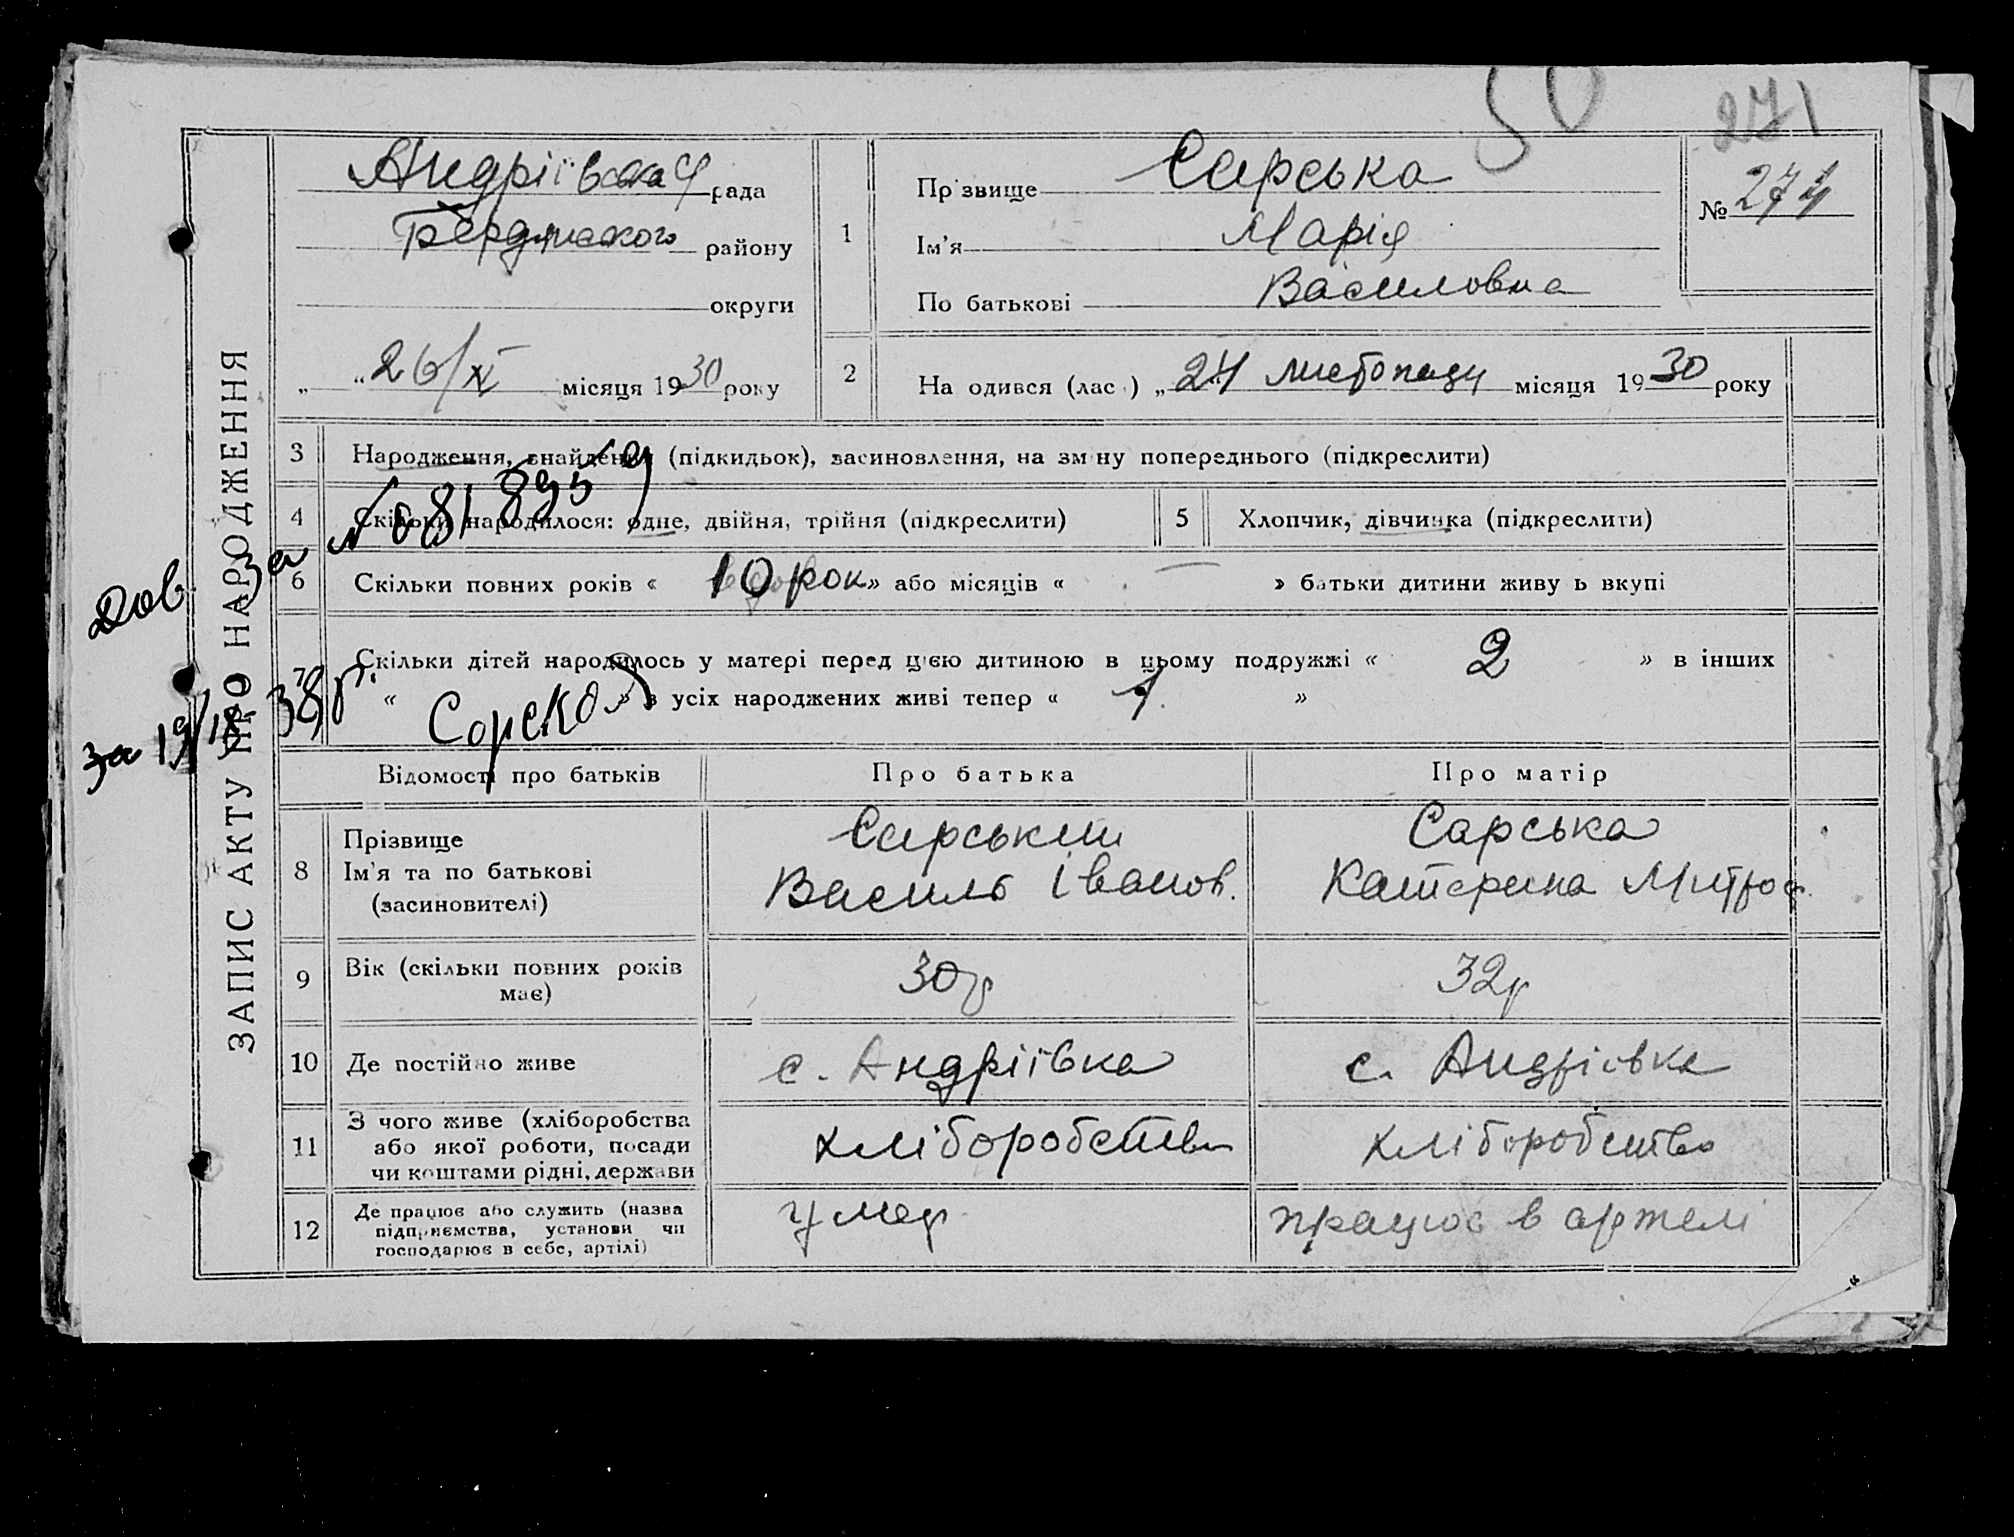 50
271
ЗАПИС АКТУ ПРО НАРОДЖЕННЯ
Андріївська рада
Бердянского району
округи
„ “ 26/XI місяця 1930 року
1
Прізвище Сарська
Ім'я Марія
По батькові Василовна
№ 274
2
На одився (лас ) „ 24 листопаду місяця 1930 року
3 Народження, знайдення (підкидьок), засиновлення, на зміну попереднього (підкреслити)
4 Скільки народилося: одне, двійня, трійня (підкреслити)
5 Хлопчик, дівчинка (підкреслити)
6 Скільки повних років « 10 рок » або місяців « — » батьки дитини живу ь вкупі
7 Скільки дітей народилось у матері перед цією дитиною в цьому подружжі « 2 » в інших
« » з усіх народжених живі тепер « 1 »
Дов. за № 081895
за 19/ 38 р. Сорска
Відомості про батьків Про батька Про матір
8 Прізвище
Ім'я та по батькові
(засиновителі)
Сарський
Василь Іванов.
Сарська
Катерина Митроф.
9 Вік (скільки повних років
має)
30 р
32 р
10 Де постійно живе с. Андріївка с. Андріївка
11 З чого живе (хліборобства
або якої роботи, посади
чи коштами рідні, держави
хліборобство
хліборобство
12 Де працює або служить (назва
підприємства, установи чи
господарює в себе, артілі)
умер
працює в артелі